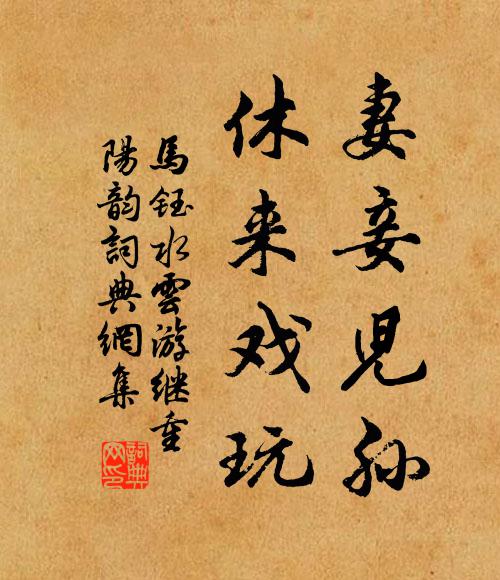 妻妾児孙
休来戏玩
馬钰水雲游继重
陽韵詞典網集
詞典
网印